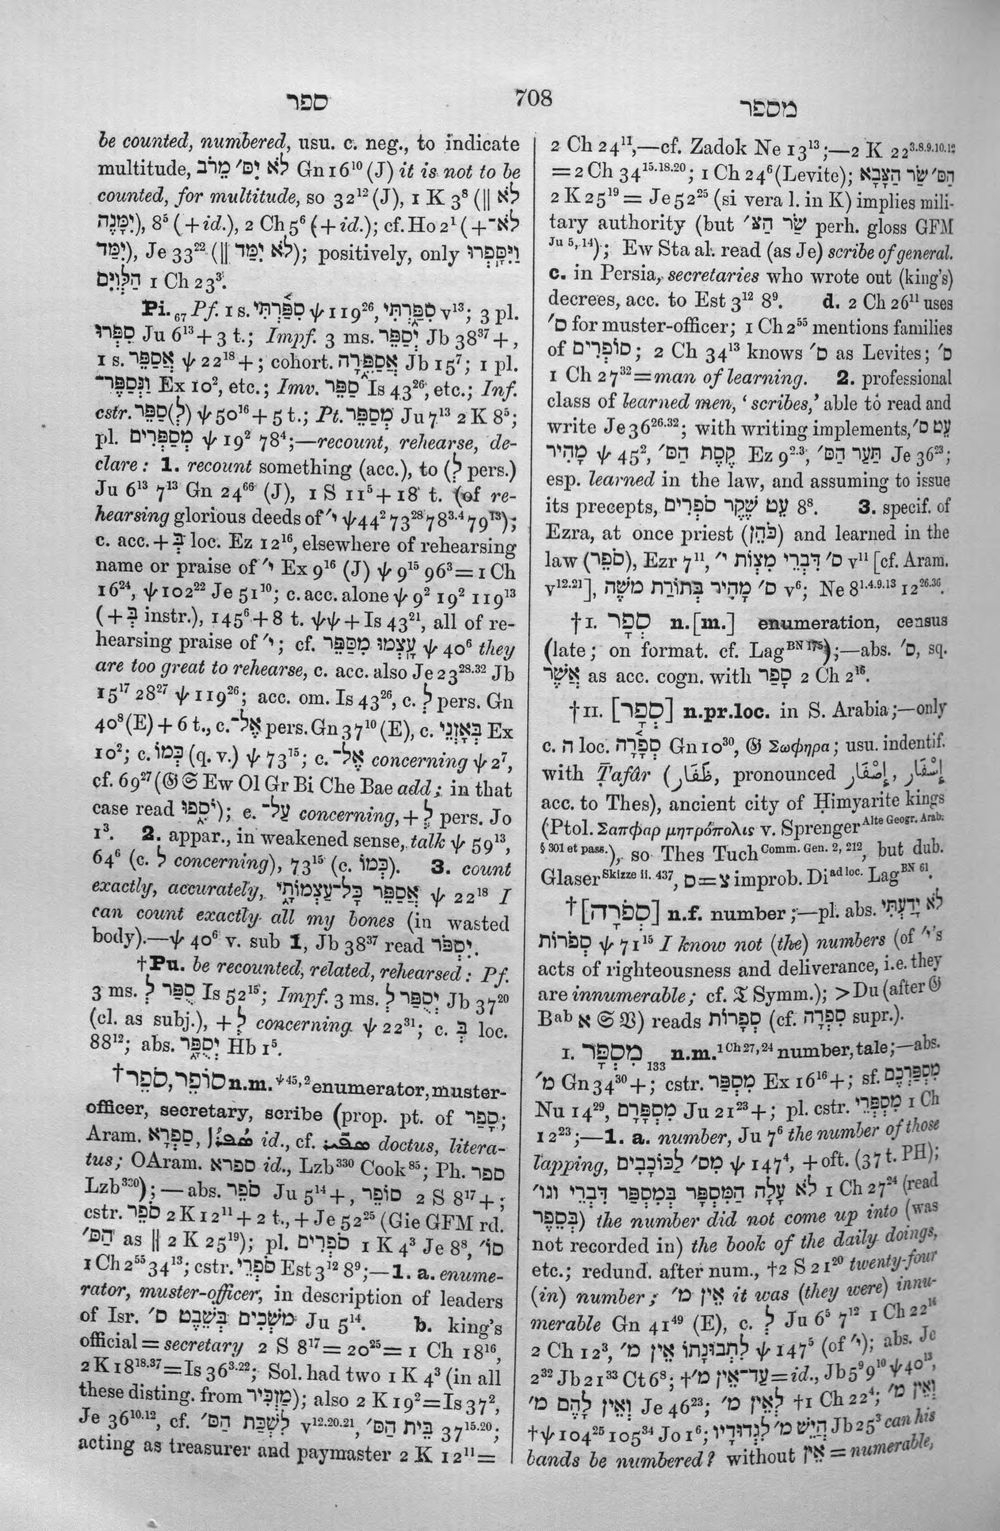 ספר
708
מספר
be counted, numbered, usu. c. neg., to indicate
multitude, לֹא יִסָּ׳ מֵרֹב Gn 16¹⁰ (J) it is not to be
counted, for multitude, so 32¹² (J), 1 K 3⁸ (|| לֹא
יִמָּנֶה), 8⁵ (+id.), 2 Ch 5⁶ (+id.); cf. Ho 2¹ (+לֹא־
יִמַּד), Je 33²² (|| לֹא יִמַּד); positively, only וַיִּסָּפְרוּ
הַלְוִיִּם 1 Ch 23³.
Pi.₆₇ Pf. 1 s. סִפַּרְתִּי ψ 119²⁶, סִפַּרְתִּי v¹³; 3 pl.
סִפְּרוּ Ju 6¹³ + 3 t.; Impf. 3 ms. יְסַפֵּר Jb 38³⁷ +,
1 s. אֲסַפֵּר ψ 22¹⁸ +; cohort. אֲסַפְּרָה Jb 15⁷; 1 pl.
וּנְסַפֵּר־ Ex 10², etc.; Imv. סַפֵּר Is 43²⁶, etc.; Inf.
cstr. סַפֵּר(לְ) ψ 50¹⁶ + 5 t.; Pt. מְסַפֵּר Ju 7¹³ 2 K 8⁵;
pl. מְסַפְּרִים ψ 19² 78⁴;—recount, rehearse, de-
clare: 1. recount something (acc.), to (לְ pers.)
Ju 6¹³ 7¹³ Gn 24⁶⁶ (J), 1 S 11⁵ + 18 t. (of re-
hearsing glorious deeds of י׳ ψ 44² 73²⁸ 78³·⁴ 79¹³);
c. acc. + בְּ loc. Ez 12¹⁶, elsewhere of rehearsing
name or praise of י׳ Ex 9¹⁶ (J) ψ 9¹⁵ 96³ = 1 Ch
16²⁴, ψ 102²² Je 51¹⁰; c. acc. alone ψ 9² 19² 119¹³
(+ בְּ instr.), 145⁶ + 8 t. ψψ + Is 43²¹, all of re-
hearsing praise of י׳; cf. עָצְמוּ מִסַּפֵּר ψ 40⁶ they
are too great to rehearse, c. acc. also Je 23²⁸·³² Jb
15¹⁷ 28²⁷ ψ 119²⁶; acc. om. Is 43²⁶, c. לְ pers. Gn
40⁸ (E) + 6 t., c. אֶל־ pers. Gn 37¹⁰ (E), c. בְּאָזְנֵי Ex
10²; c. כְּמוֹ (q. v.) ψ 73¹⁵; c. אֶל־ concerning ψ 2⁷,
cf. 69²⁷ (𝔊 𝔖 Ew Ol Gr Bi Che Bae add; in that
case read יֹסִפוּ); e. עַל־ concerning, + לְ pers. Jo
1³. 2. appar., in weakened sense, talk ψ 59¹³,
64⁶ (c. לְ concerning), 73¹⁵ (c. כְּמוֹ). 3. count
exactly, accurately, אֲסַפֵּר כָּל־עַצְמוֹתָי ψ 22¹⁸ I
can count exactly all my bones (in wasted
body).—ψ 40⁶ v. sub 1, Jb 38³⁷ read יִסְפֹּר.
†Pu. be recounted, related, rehearsed: Pf.
3 ms. סֻפַּר לְ Is 52¹⁵; Impf. 3 ms. יְסֻפַּר לְ Jb 37²⁰
(cl. as subj.), + לְ concerning ψ 22³¹; c. בְּ loc.
88¹²; abs. יְסֻפָּר Hb 1⁵.
†סֹפֵר, סוֹפֵר n.m. ψ 45, 2 enumerator, muster-
officer, secretary, scribe (prop. pt. of סָפַר;
Aram. סָפְרָא, id., cf. doctus, litera-
tus; OAram. ספרא id., Lzb³³⁰ Cook⁸⁵; Ph. ספר
Lzb³³⁰);—abs. סֹפֵר Ju 5¹⁴ +, סוֹפֵר 2 S 8¹⁷ +;
cstr. סֹפֵר 2 K 12¹¹ + 2 t., + Je 52²⁵ (Gie GFM rd.
הַסֹּ׳ as || 2 K 25¹⁹); pl. סֹפְרִים 1 K 4³ Je 8⁸, סוֹ׳
1 Ch 2⁵⁵ 34¹³; cstr. סֹפְרֵי Est 3¹² 8⁹;—1. a. enume-
rator, muster-officer, in description of leaders
of Isr. מֹשְׁכִים בְּשֵׁבֶט ס׳ Ju 5¹⁴. b. king's
official = secretary 2 S 8¹⁷ = 20²⁵ = 1 Ch 18¹⁶,
2 K 18¹⁸·³⁷ = Is 36³·²²; Sol. had two 1 K 4³ (in all
these disting. from מַזְכִּיר); also 2 K 19² = Is 37²,
Je 36¹⁰·¹², cf. לִשְׁכַּת הַסּ׳ v¹²·²⁰·²¹, בֵּית הַסּ׳ 37¹⁵·²⁰;
acting as treasurer and paymaster 2 K 12¹¹ =
2 Ch 24¹¹,—cf. Zadok Ne 13¹³;—2 K 22³·⁸·⁹·¹⁰·¹²
= 2 Ch 34¹⁵·¹⁸·²⁰; 1 Ch 24⁶ (Levite); הַסּ׳ שַׂר הַצָּבָא
2 K 25¹⁹ = Je 52²⁵ (si vera l. in K) implies mili-
tary authority (but שַׂר הַצּ׳ perh. gloss GFM
Ju 5, 14); Ew Sta al. read (as Je) scribe of general.
c. in Persia, secretaries who wrote out (king's)
decrees, acc. to Est 3¹² 8⁹. d. 2 Ch 26¹¹ uses
ס׳ for muster-officer; 1 Ch 2⁵⁵ mentions families
of סוֹפְרִים; 2 Ch 34¹³ knows ס׳ as Levites; ס׳
1 Ch 27³² = man of learning. 2. professional
class of learned men, 'scribes,' able to read and
write Je 36²⁶·³²; with writing implements, עֵט ס׳
מָהִיר ψ 45², קֶסֶת הַסּ׳ Ez 9²·³, תַּעַר הַסּ׳ Je 36²³;
esp. learned in the law, and assuming to issue
its precepts, עֵט שֶׁקֶר סֹפְרִים 8⁸. 3. specif. of
Ezra, at once priest (כֹּהֵן) and learned in the
law (סֹפֵר), Ezr 7¹¹, ס׳ דִּבְרֵי מִצְוֹת י׳ v¹¹ [cf. Aram.
v¹²·²¹], ס׳ מָהִיר בְּתוֹרַת מֹשֶׁה v⁶; Ne 8¹·⁴·⁹·¹³ 12²⁶·³⁶.
†I. סְפָר n.[m.] enumeration, census
(late; on format. cf. Lag BN 175);—abs. ס׳, sq.
אֲשֶׁר as acc. cogn. with סָפַר 2 Ch 2¹⁶.
†II. [סְפָר] n.pr.loc. in S. Arabia;—only
c. ה loc. סְפָרָה Gn 10³⁰, 𝔊 Σωφηρα; usu. indentif.
with Ṭafâr (ظَفَار, pronounced إِصْفَار, إِسْفَار
acc. to Thes), ancient city of Ḥimyarite kings
(Ptol. Σαπφαρ μητρόπολις v. Sprenger Alte Geogr. Arab.
§ 301 et pass.), so Thes Tuch Comm. Gen. 2, 212, but dub.
Glaser Skizze ii. 437, ס = צ improb. Di ad loc. Lag BN 61.
†[סְפֹרָה] n.f. number;—pl. abs. לֹא יָדַעְתִּי
סְפֹרוֹת ψ 71¹⁵ I know not (the) numbers (of י׳'s
acts of righteousness and deliverance, i.e. they
are innumerable; cf. 𝔗 Symm.); > Du (after 𝔊
Bab א 𝔖 𝔙) reads סְפָרוֹת (cf. סִפְרָה supr.).
I. מִסְפָּר₁₃₃ n.m. 1 Ch 27, 24 number, tale;—abs.
מ׳ Gn 34³⁰ +; cstr. מִסְפַּר Ex 16¹⁶ +; sf. מִסְפַּרְכֶם
Nu 14²⁹, מִסְפָּרָם Ju 21²³ +; pl. cstr. מִסְפְּרֵי 1 Ch
12²³;—1. a. number, Ju 7⁶ the number of those
lapping, מִס׳ לַכּוֹכָבִים ψ 147⁴, + oft. (37 t. PH);
לֹא עָלָה הַמִּסְפָּר בְּמִסְפַּר דִּבְרֵי וגו׳ 1 Ch 27²⁴ (read
בְּסֵפֶר) the number did not come up into (was
not recorded in) the book of the daily doings,
etc.; redund. after num., †2 S 21²⁰ twenty-four
(in) number; אֵין מ׳ it was (they were) innu-
merable Gn 41⁴⁹ (E), c. לְ Ju 6⁵ 7¹² 1 Ch 22¹⁶
2 Ch 12³, לִתְבוּנָתוֹ אֵין מ׳ ψ 147⁵ (of י׳); abs. Je
2³² Jb 21³³ Ct 6⁸; †עַד־אֵין מ׳ = id., Jb 5⁹ 9¹⁰ ψ 40¹³,
וְאֵין לָהֶם מ׳ Je 46²³; לְאֵין מ׳ †1 Ch 22⁴; וְאֵין מ׳
†ψ 104²⁵ 105³⁴ Jo 1⁶; הֲיֵשׁ מ׳ לִגְדוּדָיו Jb 25³ can his
bands be numbered? without אֵין = numerable,